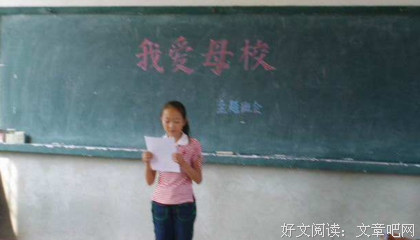 我爱母校
主题班会
好文阅读：文章吧网